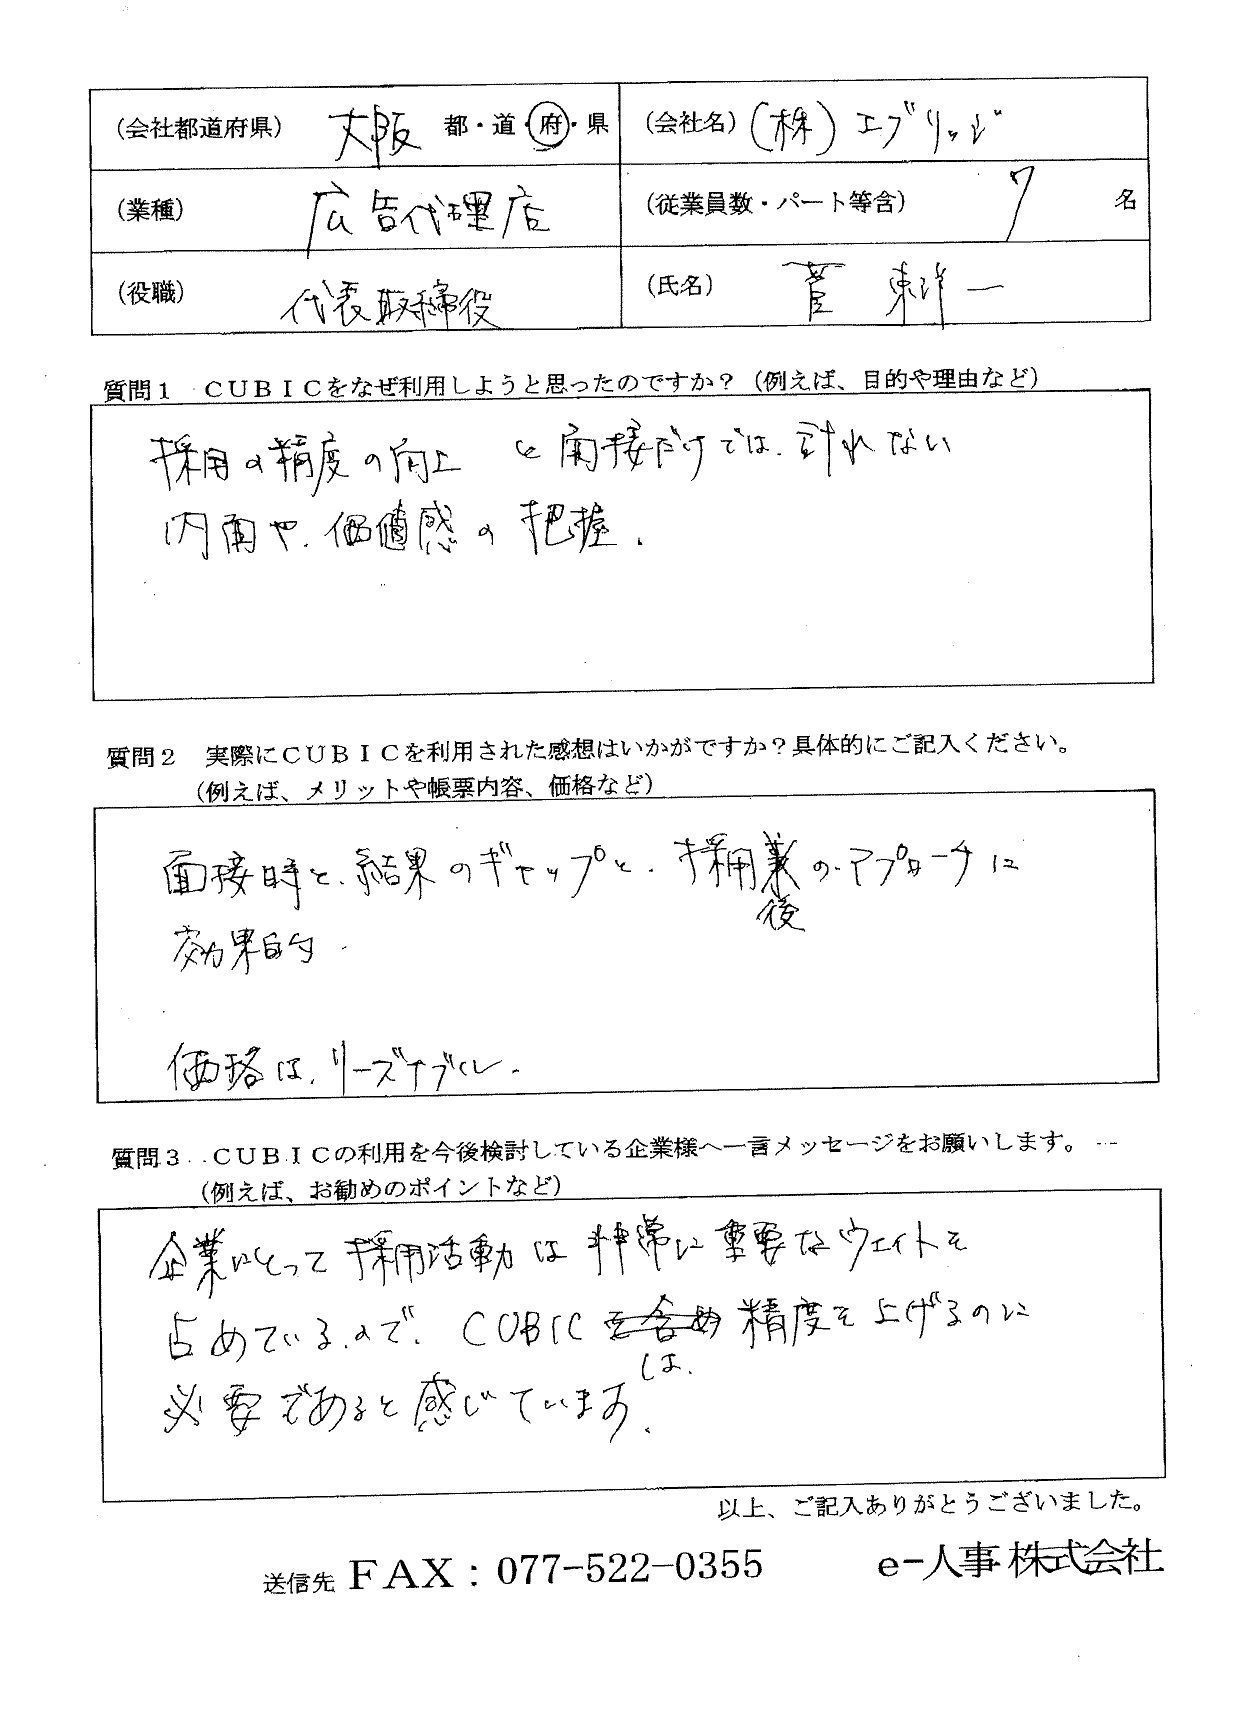 (会社都道府県) 大阪 都・道・府・県 (会社名) (株) エブリッジ
(業種) 広告代理店 (従業員数・パート等含) 7 名
(役職) 代表取締役 (氏名) 菅 東洋一
質問1 CUBICをなぜ利用しようと思ったのですか?(例えば、目的や理由など)
採用の精度の向上 と面接だけでは、計れない
内面や、価値感の把握.
質問2 実際にCUBICを利用された感想はいかがですか?具体的にご記入ください。
(例えば、メリットや帳票内容、価格など)
面接時と、結果のギャップと、採用後のアプローチに
効果的.
価格は、リーズナブル.
質問3 CUBICの利用を今後検討している企業様へ一言メッセージをお願いします。
(例えば、お勧めのポイントなど)
企業にとって採用活動は非常に重要なウェイトを
占めているので、CUBICは、精度を上げるのに
必要であると感じています.
以上、ご記入ありがとうございました。
送信先 FAX:077-522-0355 e-人事株式会社